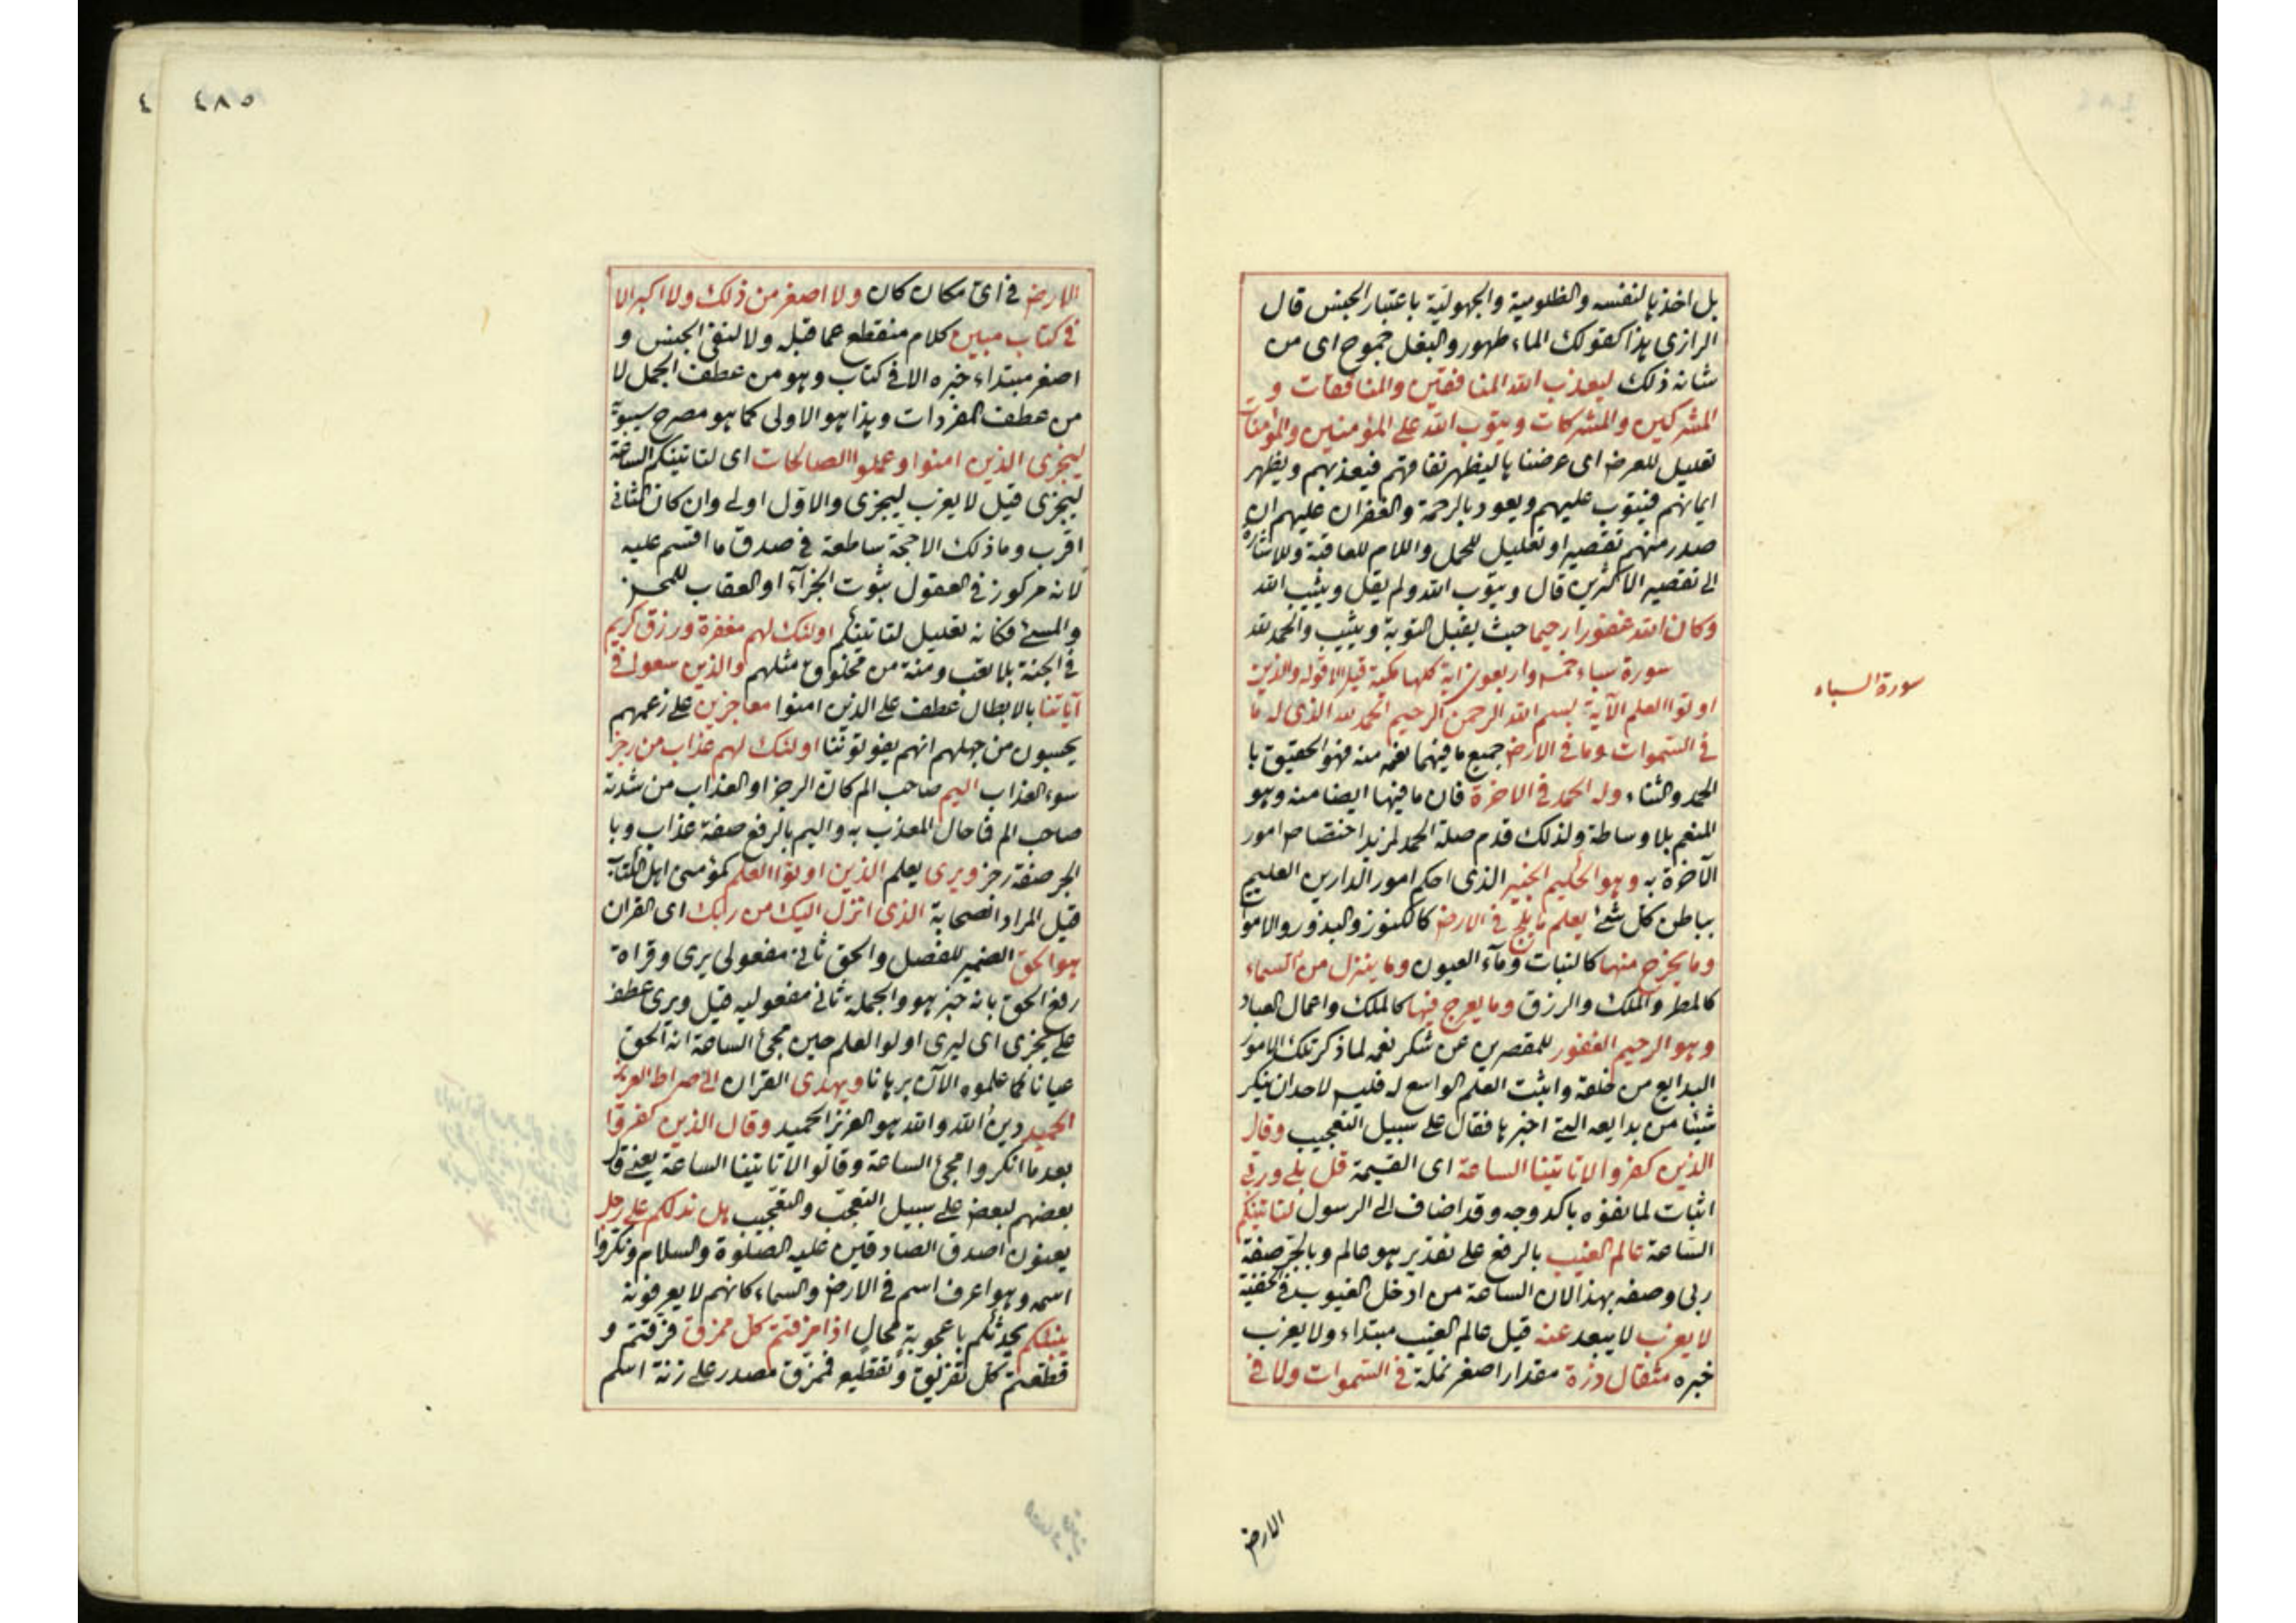 بل اخذها لنفسه والظلومية والجهولية باعتبار الجنس قال
الرازى هذا كقولك الماء طهور والبغل جموح اى من
شانه ذلك ليعذب الله المنافقين والمنافقات و
المشركين والمشركات ويتوب الله على المؤمنين والمؤمنات
تعليل للعرض اى عرضنا ها ليظهر نفاقهم فيعذبهم ويظهر
ايمانهم فيتوب عليهم ويعود بالرحمة والغفران عليهم ان
صدر منهم تقصير او تعليل للحمل واللام للعاقبة وللاشارة
الى تقصير الاكثرين قال ويتوب الله ولم يقل ويثيب الله
وكان الله غفورا رحيما حيث يقبل التوبة ويثيب والحمد لله
سورة سباء خمس واربعون اية كلها مكية قيل الا قوله والذين
اوتوا العلم الآية بسم الله الرحمن الرحيم الحمد لله الذى له ما
فى السموات وما فى الارض جميع ما فيهما نعمه منه فهو الحقيق با
الحمد والثناء وله الحمد فى الاخرة فان ما فيها ايضا منه وهو
المنعم بلا وساطة ولذلك قدم صلة الحمد لمزيد اختصاص امور
الآخرة به وهو الحكيم الخبير الذى احكم امور الدارين العليم
بباطن كل شئ يعلم ما يلج فى الارض كالكنوز والبذور والاموا
وما يخرج منها كالنبات وماء العيون وما ينزل من السماء
كالمطر والملك والرزق وما يعرج فيها كالملك واعمال العباد
وهو الرحيم الغفور للمقصرين عن شكر نعمه لما ذكر تلك الامور
البدايع من خلقه واثبت العلم الواسع له فليس لاحد ان ينكر
شيئا من بدايعه التى اخبر بها فقال على سبيل التعجيب وقال
الذين كفروا لا تاتينا الساعة اى القيمة قل بلى وربى
اثبات لما نفوه باكد وجه وقد اضاف الى الرسول لتاتينكم
الساعة عالم الغيب بالرفع على تقدير هو عالم وبالجر صفة
ربى وصفه بهذا لان الساعة من ادخل الغيوب فى الخفية
لا يعزب لا يبعد عنه قيل عالم الغيب مبتداء ولا يعزب
خبره مثقال ذرة مقدار اصغر نملة فى السموات ولا فى
سورة السباء
الارض
٤٨٥ ٤
الارض فى اى مكان كان ولا اصغر من ذلك ولا اكبر الا
فى كتاب مبين كلام منقطع عما قبله ولا لنفى الجنس و
اصغر مبتداء خبره الا فى كتاب وهو من عطف الجمل لا
من عطف المفردات وهذا هو الاولى كما هو مصرح سيبويه
ليجزى الذين امنوا وعملوا الصالحات اى لتاتينكم الساعة
ليجزى قيل لا يعزب ليجزى والاول اولى وان كان الثانى
اقرب وما ذلك الا حجة ساطعة فى صدق ما اقسم عليه
لانه مركوز فى العقول ثبوت الجزآء او العقاب للمحسن
والمسئ فكانه تعليل لتاتينكم اولئك لهم مغفرة ورزق كريم
فى الجنة بلا تعب ومنة من مخلوق مثلهم والذين سعوا فى
آياتنا بالابطال عطف على الذين امنوا معاجزين على زعمهم
يحسبون من جهلهم انهم يفوتوننا اولئك لهم عذاب من رجز
سوء العذاب اليم صاحب الم كان الرجز او العذاب من شدته
صاحب الم فما حال المعذب به واليم بالرفع صفة عذاب وبا
الجر صفة رجز ويرى يعلم الذين اوتوا العلم كمؤمنى اهل الكتاب
قيل المراد الصحابة الذى انزل اليك من ربك اى القران
هو الحق الضمير للفصل والحق ثانى مفعولى يرى وقراة
رفع الحق بانه خبر هو والجملة ثانى مفعوليه قيل ويرى عطف
على يجزى اى ليرى اولوا العلم حين مجئ الساعة انه الحق
عيانا كما علموه الآن برهانا ويهدى القران الى صراط العزيز
الحميد دين الله والله هو العزيز الحميد وقال الذين كفروا
بعد ما انكروا مجئ الساعة وقالوا لا تاتينا الساعة يعنى قال
بعضهم لبعض على سبيل التعجب والتعجيب هل ندلكم على رجل
يعنون اصدق الصادقين عليه الصلوة والسلام ونكروا
اسمه وهو اعرف اسم فى الارض والسماء كانهم لا يعرفونه
ينبئكم يحدثكم باعجوبة محال اذا مزقتم كل ممزق فرقتم و
قطعتم كل تفريق وتقطيع فممزق مصدر على زنة اسم